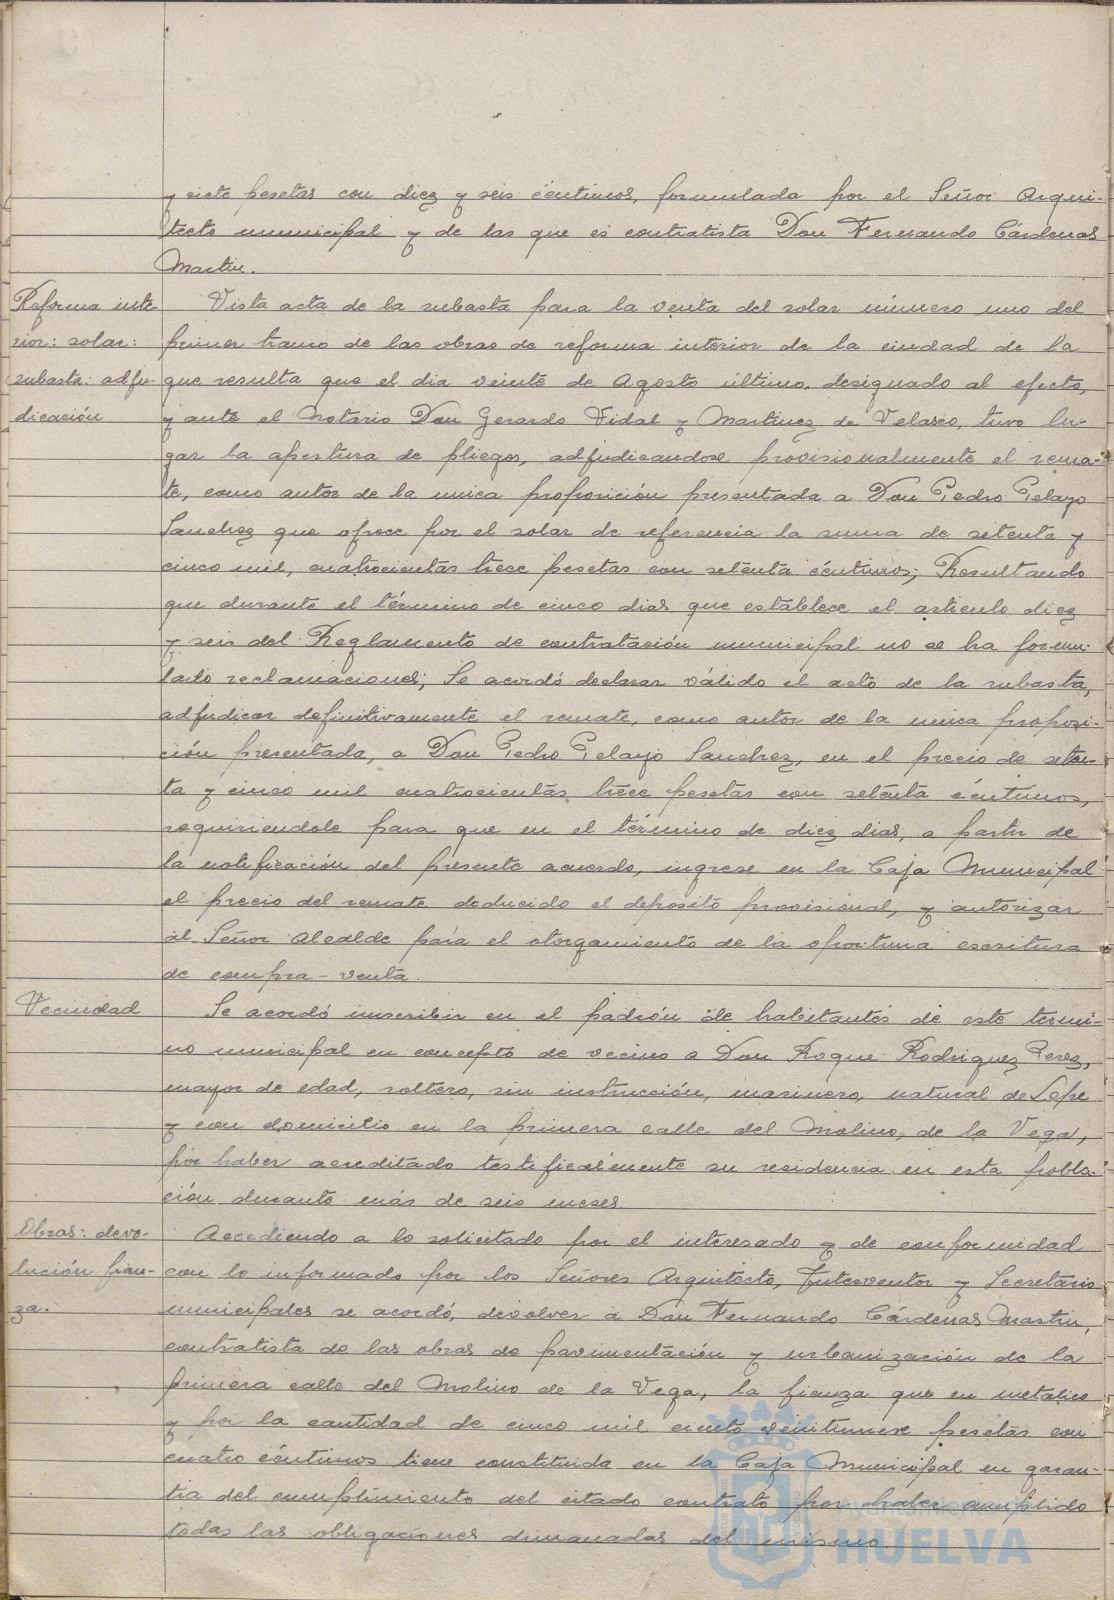 y siete pesetas con diez y seis céntimos, formulada por el Señor Arqui-
tecto municipal y de las que es contratista Don Fernando Cárdenas
Martin.
Reforma inte
rior: solar:
subasta: adju-
dicación
Vista acta de la subasta para la venta del solar número uno del
primer tramo de las obras de reforma interior de la ciudad de la
que resulta que el dia veinte de Agosto último, designado al efecto,
y ante el Notario Don Gerardo Vidal y Martinez de Velasco, tuvo lu-
gar la apertura de pliegos, adjudicandose provisionalmente el rema-
te, como autor de la unica proposición presentada a Don Pedro Pelayo
Sanchez que ofrece por el solar de referencia la suma de setenta y
cinco mil, cuatrocientas trece pesetas con setenta céntimos; Resultando
que durante el término de cinco dias que establece el articulo diez
y seis del Reglamento de contratación municipal no se ha formu-
lado reclamaciones; Se acordó declarar válido el acto de la subasta,
adjudicar definitivamente el remate, como autor de la unica proposi-
ción presentada, a Don Pedro Pelayo Sanchez, en el precio de seten-
ta y cinco mil cuatrocientas trece pesetas con setenta céntimos,
requiriendole para que en el término de diez dias, a partir de
la notificación del presente acuerdo, ingrese en la Caja Municipal
el precio del remate deducido el deposito provisional, y autorizar
al Señor Alcalde para el otorgamiento de la oportuna escritura
de compra-venta.
Vecindad
Se acordó inscribir en el padrón de habitantes de este termi-
no municipal en concepto de vecino a Don Roque Rodriguez Perez,
mayor de edad, soltero, sin instrucción, marinero, natural de Lepe
y con domicilio en la primera calle del Molino, de la Vega,
por haber acreditado testificalmente su residencia en esta pobla-
ción durante más de seis meses.
Obras: devo-
lución fian-
za.
Accediendo a lo solicitado por el interesado y de conformidad
con lo informado por los Señores Arquitecto, Interventor y Secretario
municipales se acordó, devolver a Don Fernando Cárdenas Martin,
contratista de las obras de pavimentación y urbanización de la
primera calle del Molino de la Vega, la fianza que en metálico
y por la cantidad de cinco mil ciento veintinueve pesetas con
cuatro céntimos tiene constituida en la Caja Municipal en garan-
tia del cumplimiento del citado contrato por haber cumplido
todas las obligaciones dimanadas del mismo.
Ayuntamiento de
HUELVA